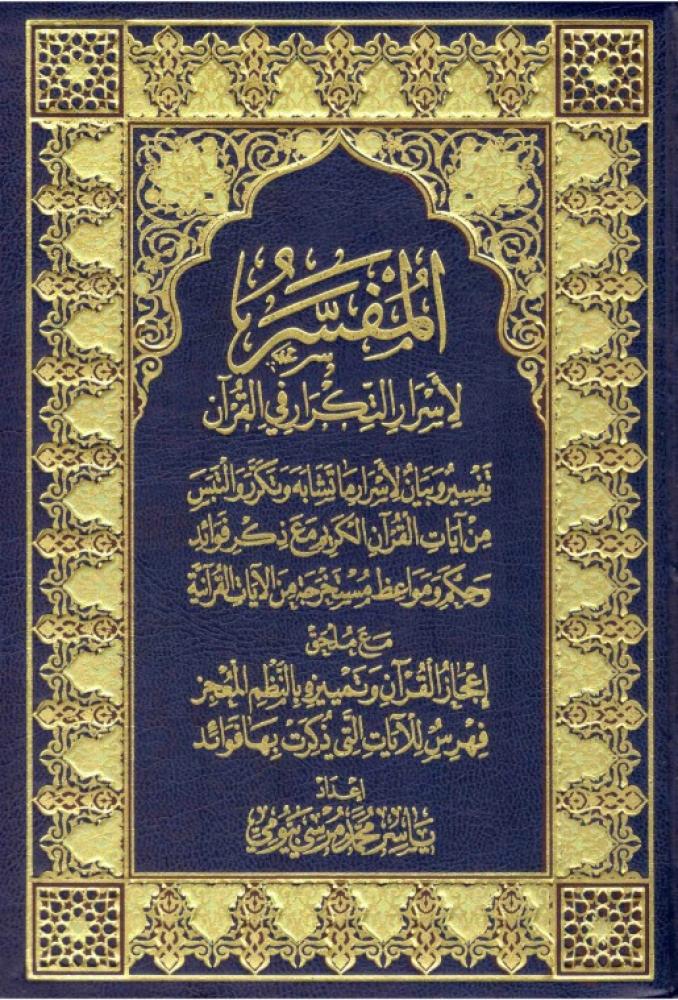 المُفَسَّرُ
لِأَسْرَارِ التِّكْرَارِ فِي القُرْآن
تَفْسِيرٌ وَبَيَانٌ لِأَسْرَارِ مَا تَشَابَهَ وَتَكَرَّرَ وَالْتَبَسَ
مِنْ آيَاتِ القُرْآنِ الكَرِيمِ مَعَ ذِكْرِ فَوَائِدَ
وَحِكَمٍ وَمَوَاعِظَ مُسْتَخْرَجَةٍ مِنَ الآيَاتِ القُرْآنِيَّة
مَعَ مُلْحَق
إِعْجَازُ القُرْآنِ وَتَمْيِيزِهِ بِالنَّظْمِ المُعْجِز
فِهْرِسٌ لِلآيَاتِ الَّتِي ذُكِرَتْ بِهَا فَوَائِد
إِعْدَاد
يَاسِر مُحَمَّد مُرْسِي بَيُّومِي